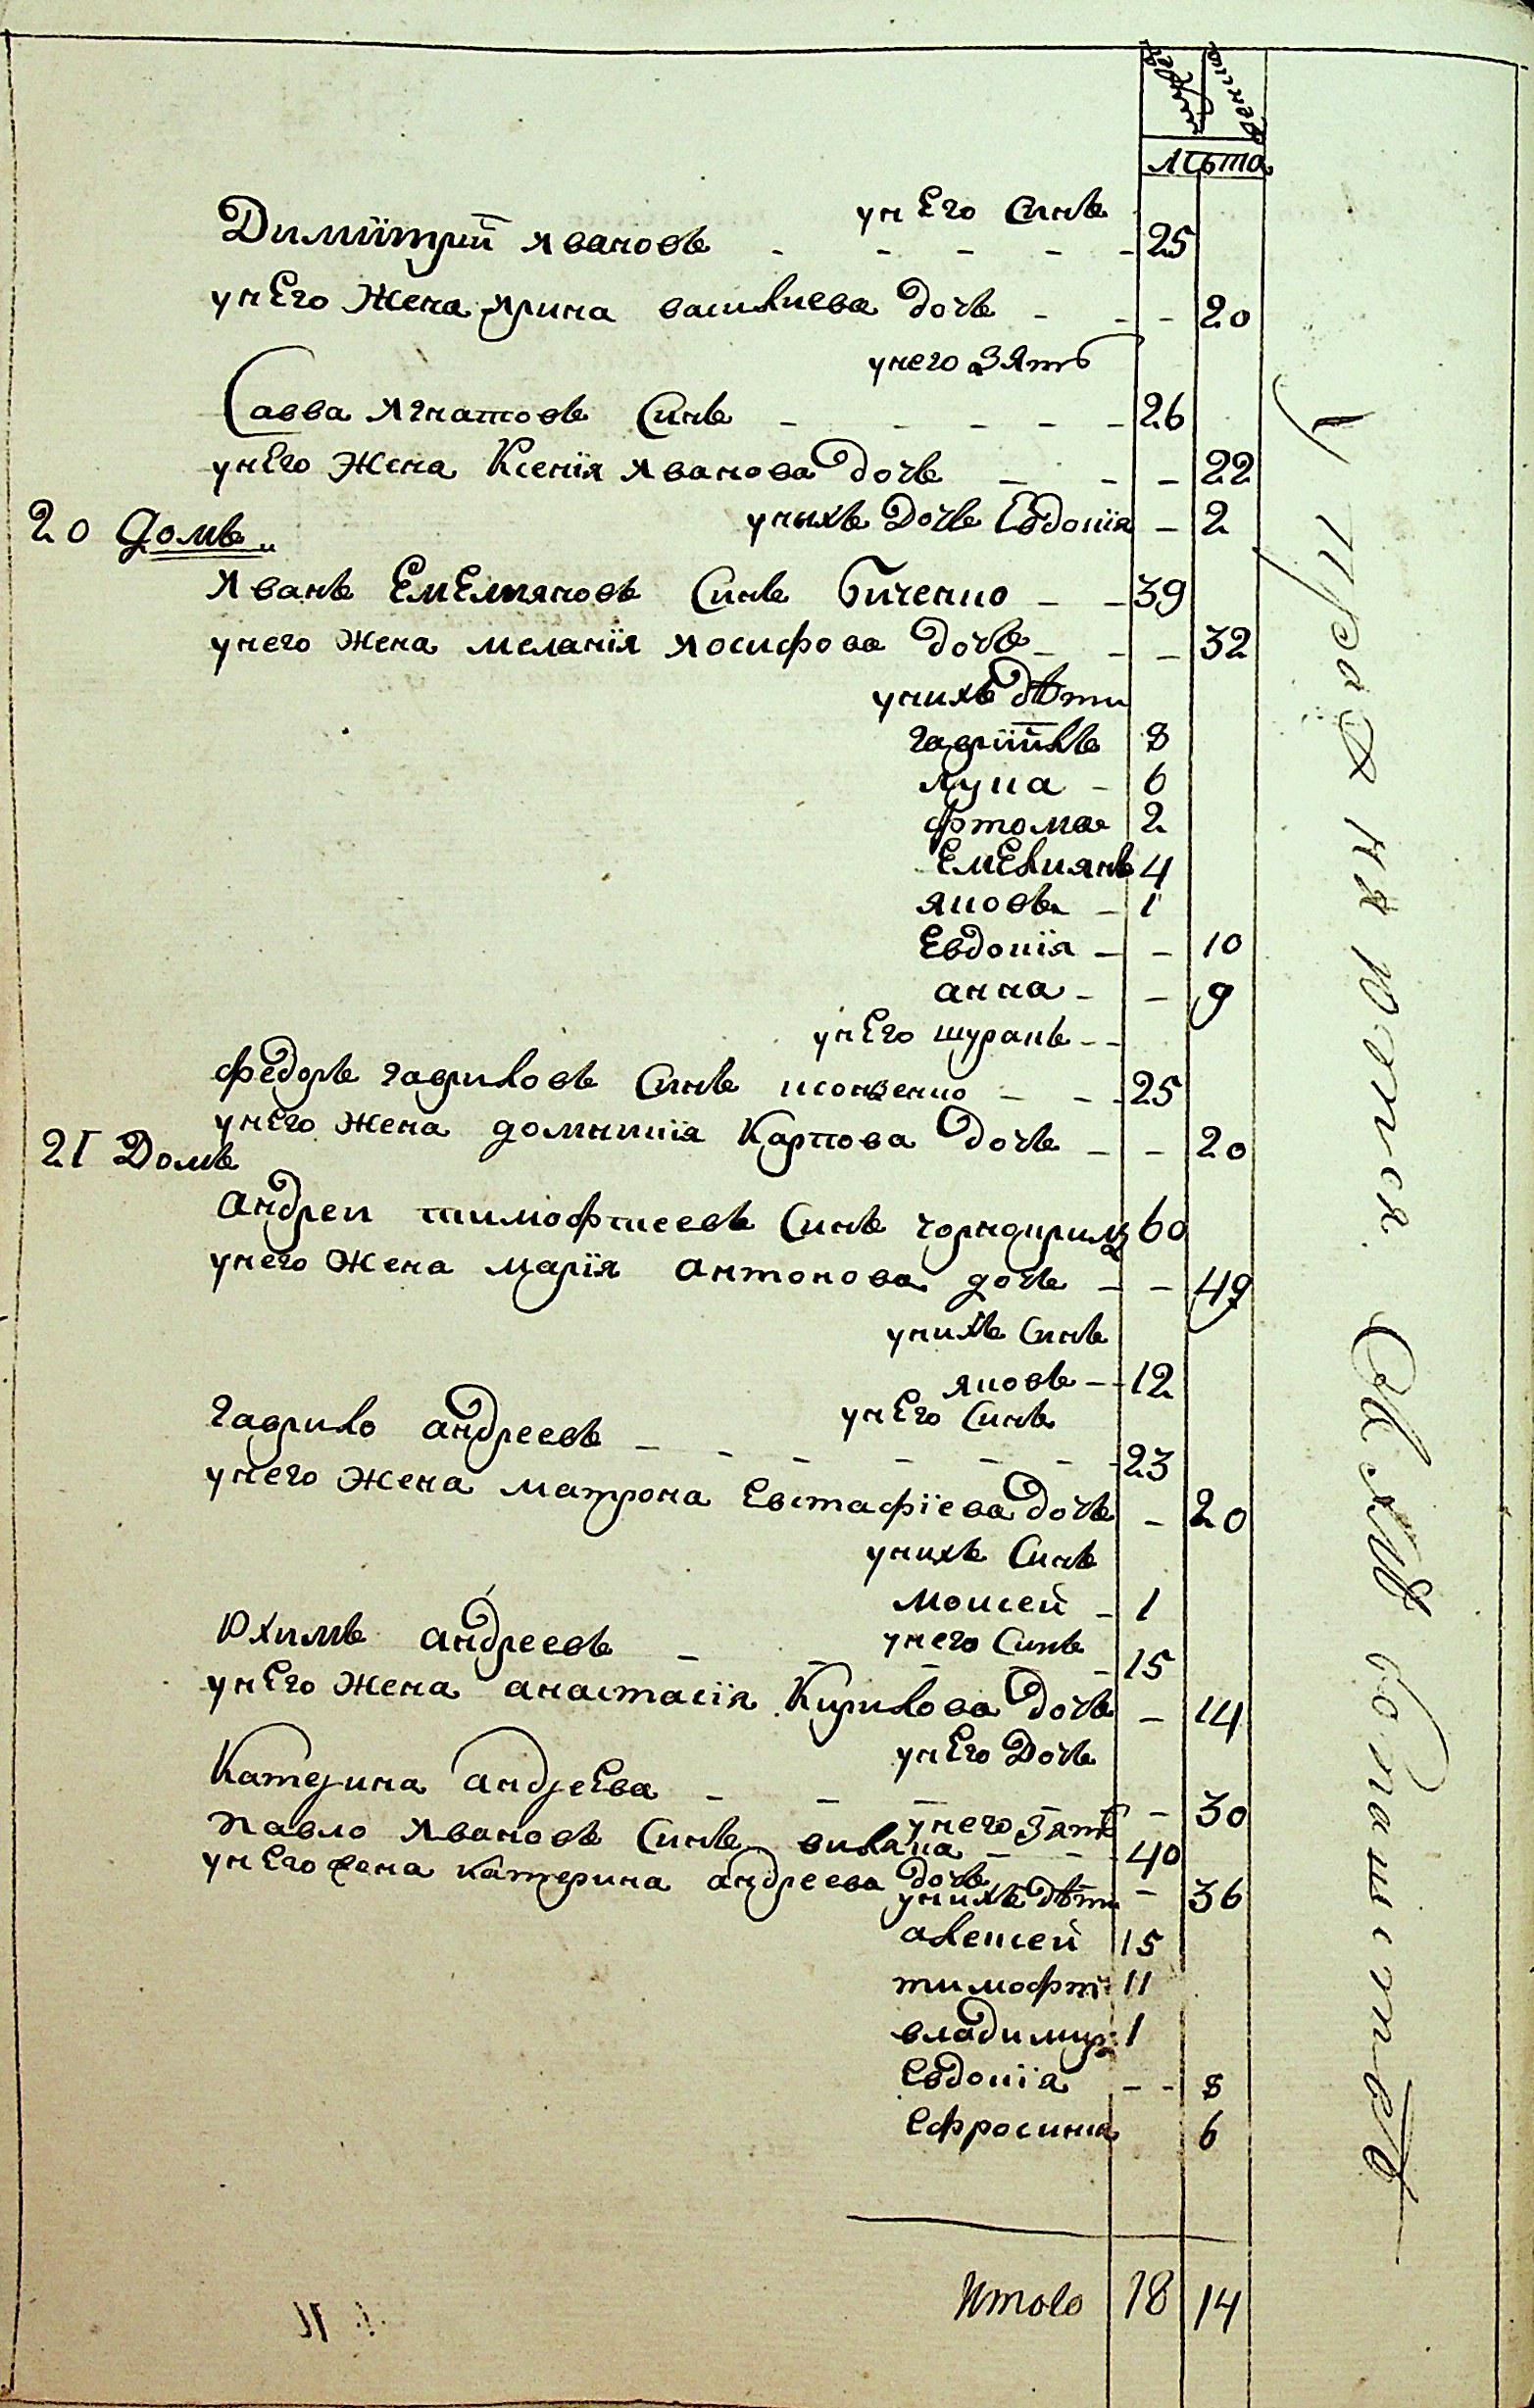 мужеск женска
лѣта
унЕго Синъ
Димїтрїй Ивановъ - - - - - 25
унЕго Жена Ирина василиева дочь - - - 20
унего Зять
Савва Игнатовъ Синъ - - - - - 26
унЕго Жена Ксенїя Иванова дочь - - - 22
унихъ дочь Евдокїя - 2
20 Домъ
Иванъ ЕмЕльяновъ Синъ Гиченко - - 39
унего жена меланїя Иосифова дочь - - - 32
унихъ дѣти
гавриїлъ 8
лука - 6
фтома 2
ЕмЕлиянъ 4
яковъ - 1
Евдокїя - - 10
анна - - 9
унЕго шуринъ - -
федоръ гавриловъ Синъ - - - 25
унЕго жена домникїя Карпова дочь - - 20
21 Домъ
андреи тимофтиеевъ Синъ 60
унего жена марїя антонова дочь - - 49
унихъ Синъ
яковъ - - 12
унЕго Синъ
гаврило андреевъ - - - - - - 23
унего жена матрона Евстафїева дочь - 20
унихъ Синъ
моисей - 1
унего Синъ
Юхимъ андреевъ - - - - - 15
унЕго жена анастасїя Кирилова дочь - 14
унЕго Дочь
Катерина андреЕва - - - - - 30
унего Зять
павло Ивановъ Синъ - - - 40
унЕго жена катерина андреева дочь - 36
унихъ дѣти
алексей 15
тимофтї 11
владимир 1
Евдокїя - - 8
Ефросиния 6
Итого 18 14